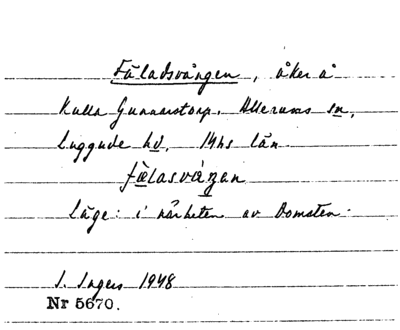 Fäladsvången, åker å
Kulla Gunnarstorp. Allerums sn,
Luggude hd, Mhs län
fælasváŋan
Läge: i närheten av Domsten.
I. Ingers 1948
Nr 5670.